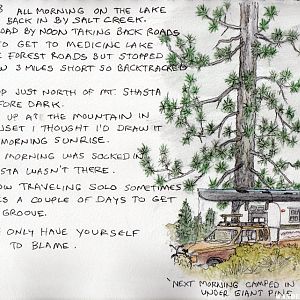 ALL MORNING ON THE LAKE
BACK IN BY SALT CREEK.
OAD BY NOON TAKING BACK ROADS
TO GET TO MEDICINE LAKE
E FOREST ROADS BUT STOPPED
W 3 MILES SHORT SO BACKTRACKED
P JUST NORTH OF MT. SHASTA
FORE DARK.
UP AT THE MOUNTAIN IN
NSET I THOUGHT I'D DRAW IT
MORNING SUNRISE.
MORNING WAS SOCKED IN.
STA WASN'T THERE.
OW TRAVELING SOLO SOMETIMES
ES A COUPLE OF DAYS TO GET
GROOVE.
ONLY HAVE YOURSELF
TO BLAME.
NEXT MORNING CAMPED IN
UNDER GIANT PINE